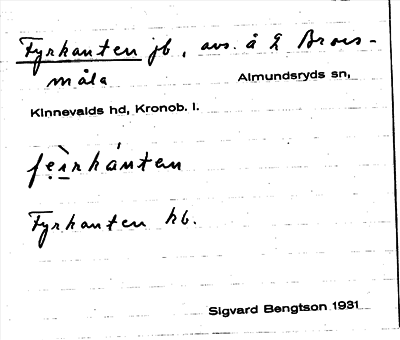 Fyrkanten jb, avs. å 2 Broes-
måla
Almundsryds sn,
Kinnevalds hd, Kronob. l.
Fyrkanten hb.
Sigvard Bengtson 1931